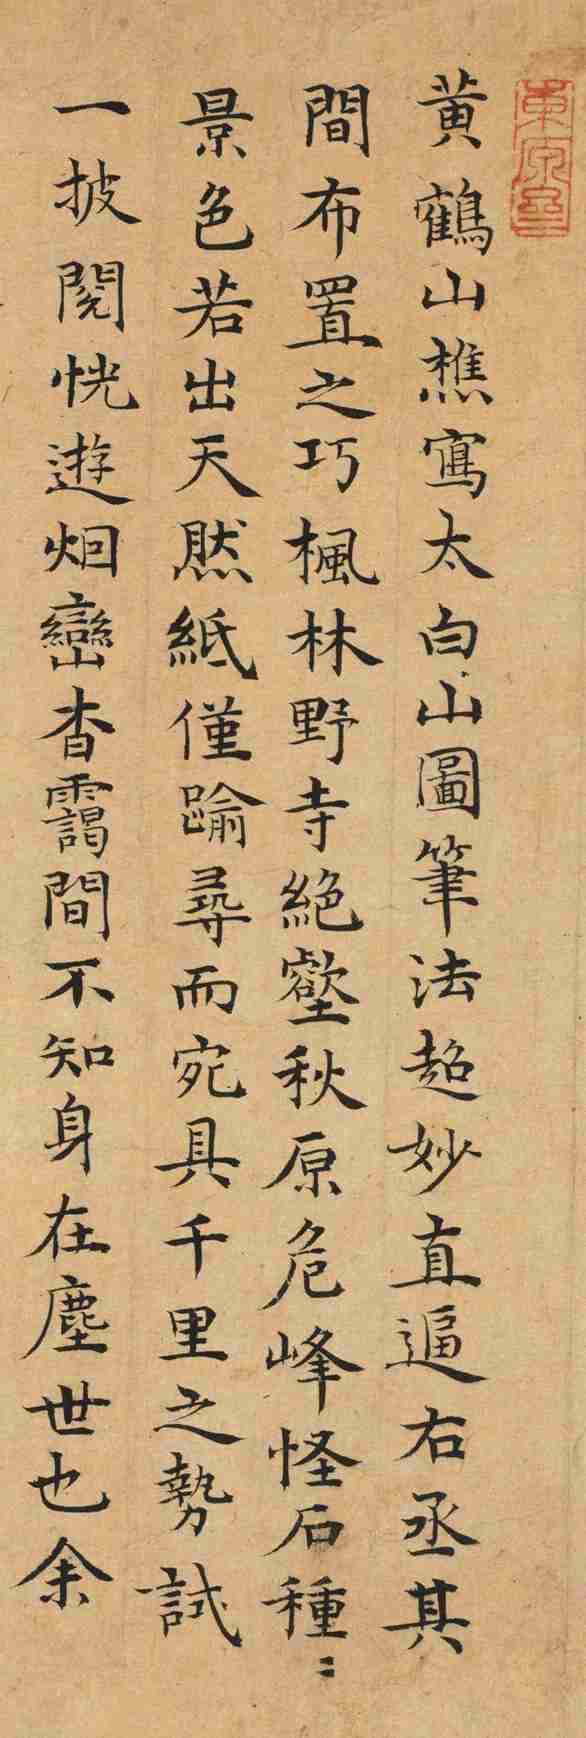 黃鶴山樵寫太白山圖筆法超妙直逼右丞其
間布置之巧楓林野寺絕壑秋原危峰怪石種〻
景色若出天然紙僅踰尋而宛具千里之勢試
一披閱恍遊烟巒杳靄間不知身在塵世也余